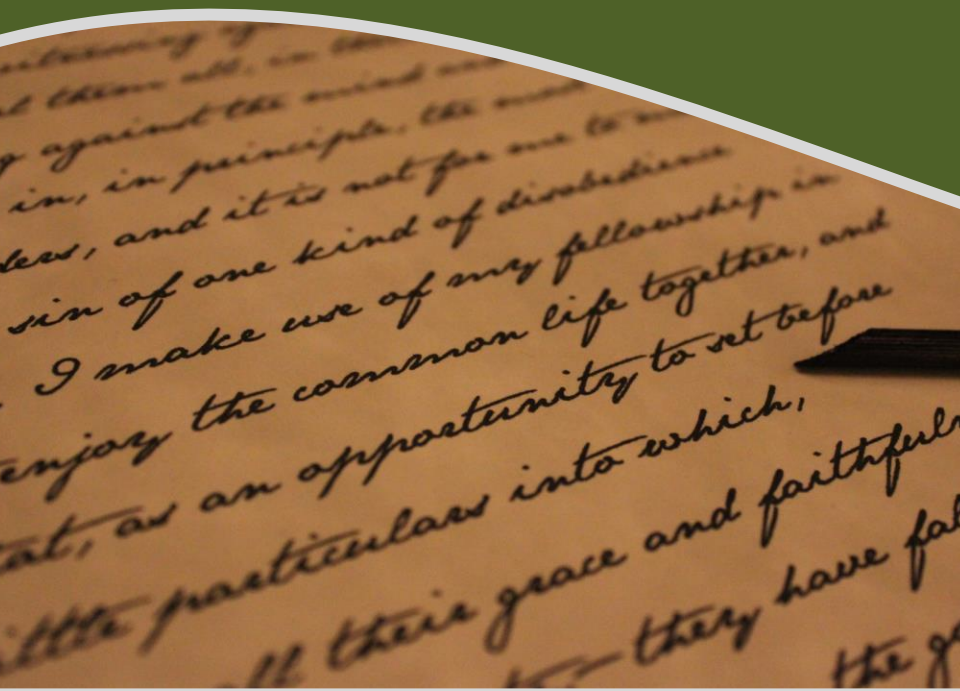 them all, in
against the mind
in, in principle, the
and it is not for me to
sin of one kind of disobedience
I make use of my fellowship in
enjoy the common life together, and
as an opportunity to set before
particulars into which,
all their grace and faithfully
they have
the